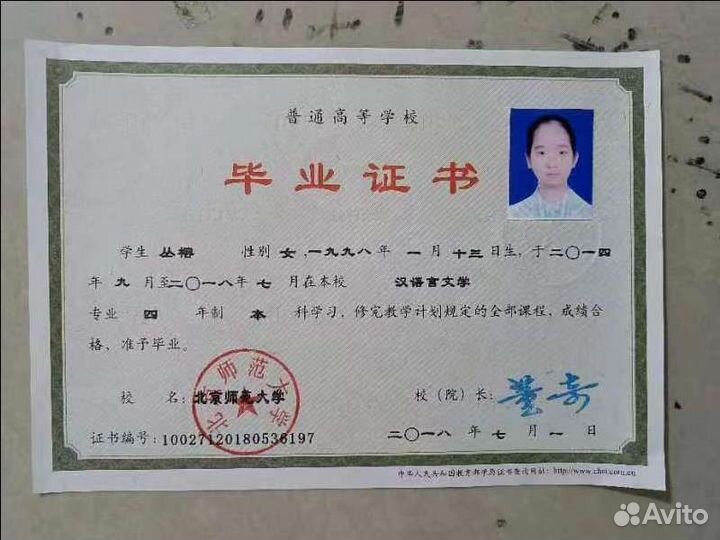 普通高等学校
毕业证书
学生 丛榕 性别 女,一九九八年 一 月 十三日生,于 二〇一四
年 九 月至二〇一八年 七 月在本校 汉语言文学
专业 四 年制 本 科学习,修完教学计划规定的全部课程,成绩合
格,准予毕业。
校 名:北京师范大学 校(院)长:董奇
北京师范大学
证书编号:10027120180536197 二〇一八 年 七 月 一 日
中华人民共和国教育部学历证书查询网址:http://www.chsi.com.cn
Avito